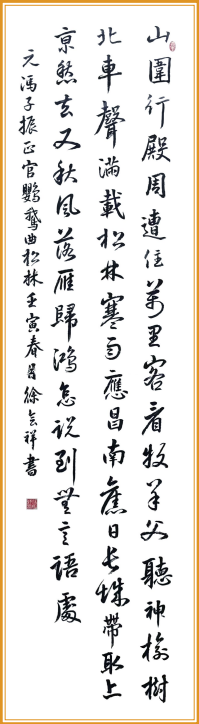 山圍行殿周遭住萬里客看牧羊父聽神榆樹
北車聲滿載松林寒雨應昌南舊日長城帶取上
京愁去又秋風落雁歸鴻怎说到無言語處
元馮子振正宮鸚鵡曲松林壬寅春月徐会祥書